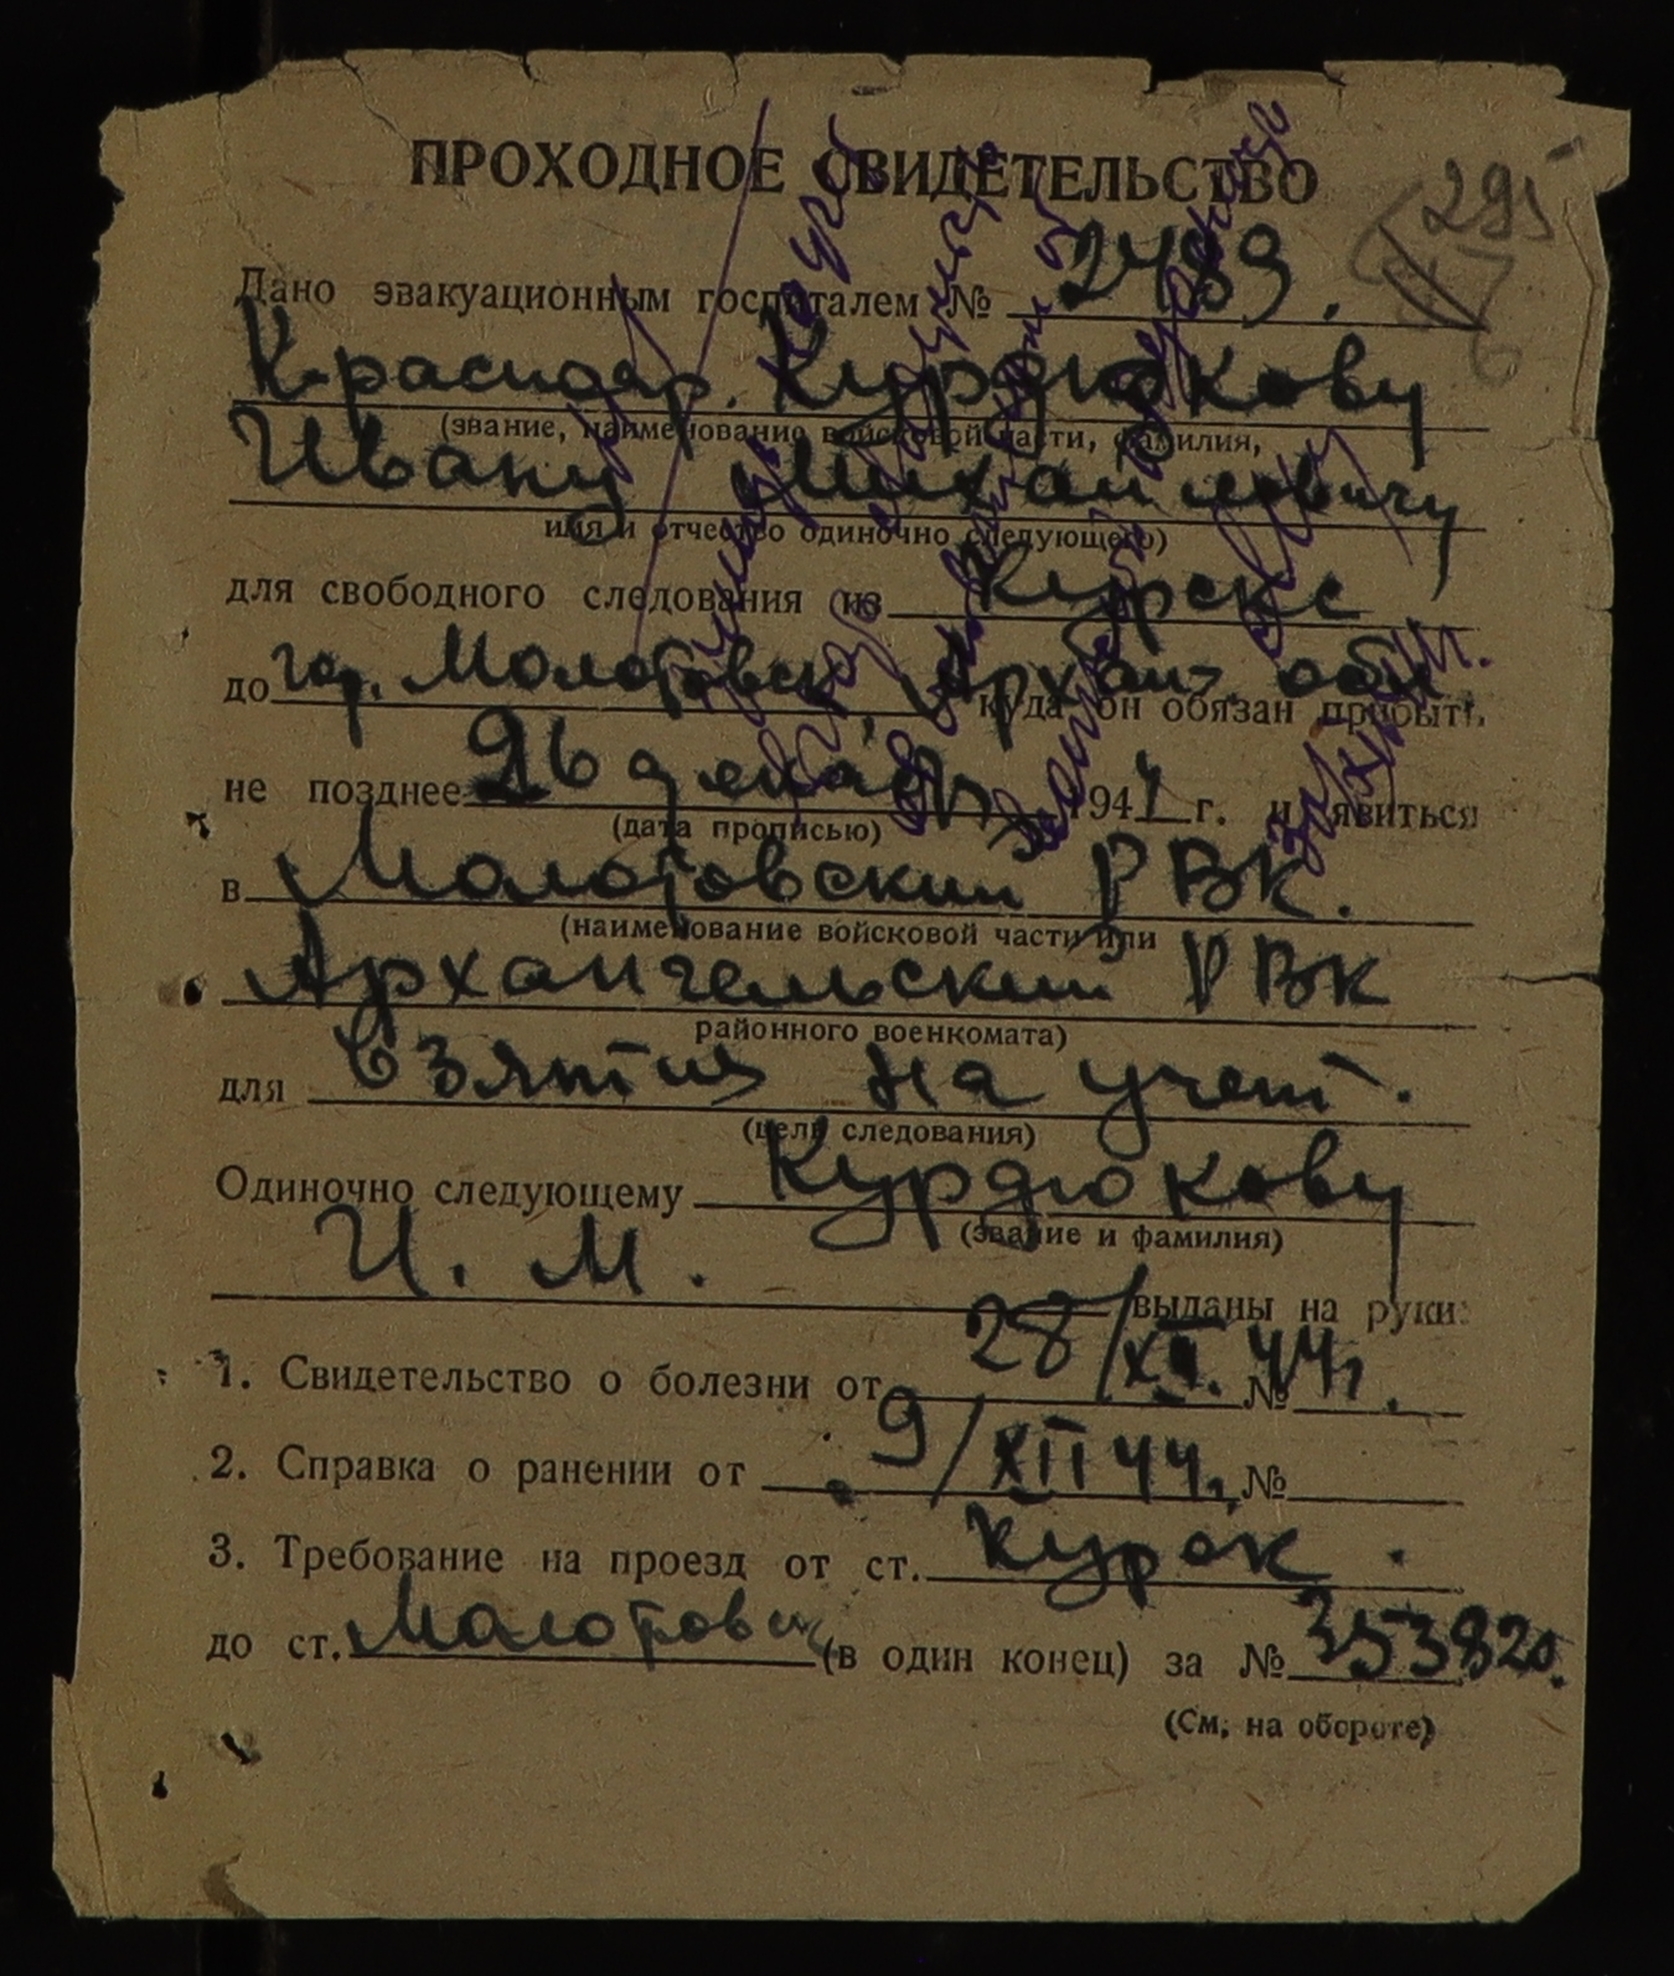 ПРОХОДНОЕ СВИДЕТЕЛЬСТВО
295
Дано эвакуационным госпиталем № 2489.
Красноар. Курдюкову
(звание, наименование войсковой части, фамилия,
Ивану Михайловичу
имя и отчество одиночно следующего)
для свободного следования из Курска
до гор. Молотовск, Арханг. обл куда он обязан прибыть
не позднее 26 декабр 1944 г. и явиться
(дата прописью)
в Молотовский РВК.
(наименование войсковой части или
Архангельский РВК
районного военкомата)
для взятия на учет.
(цель следования)
Одиночно следующему Курдюкову
(звание и фамилия)
И. М. выданы на руки:
1. Свидетельство о болезни от 28/XI. 44г. №
2. Справка о ранении от 9/XII 44г. №
3. Требование на проезд от ст. Курск.
до ст. Молотовск (в один конец) за № 353820.
(См. на обороте)